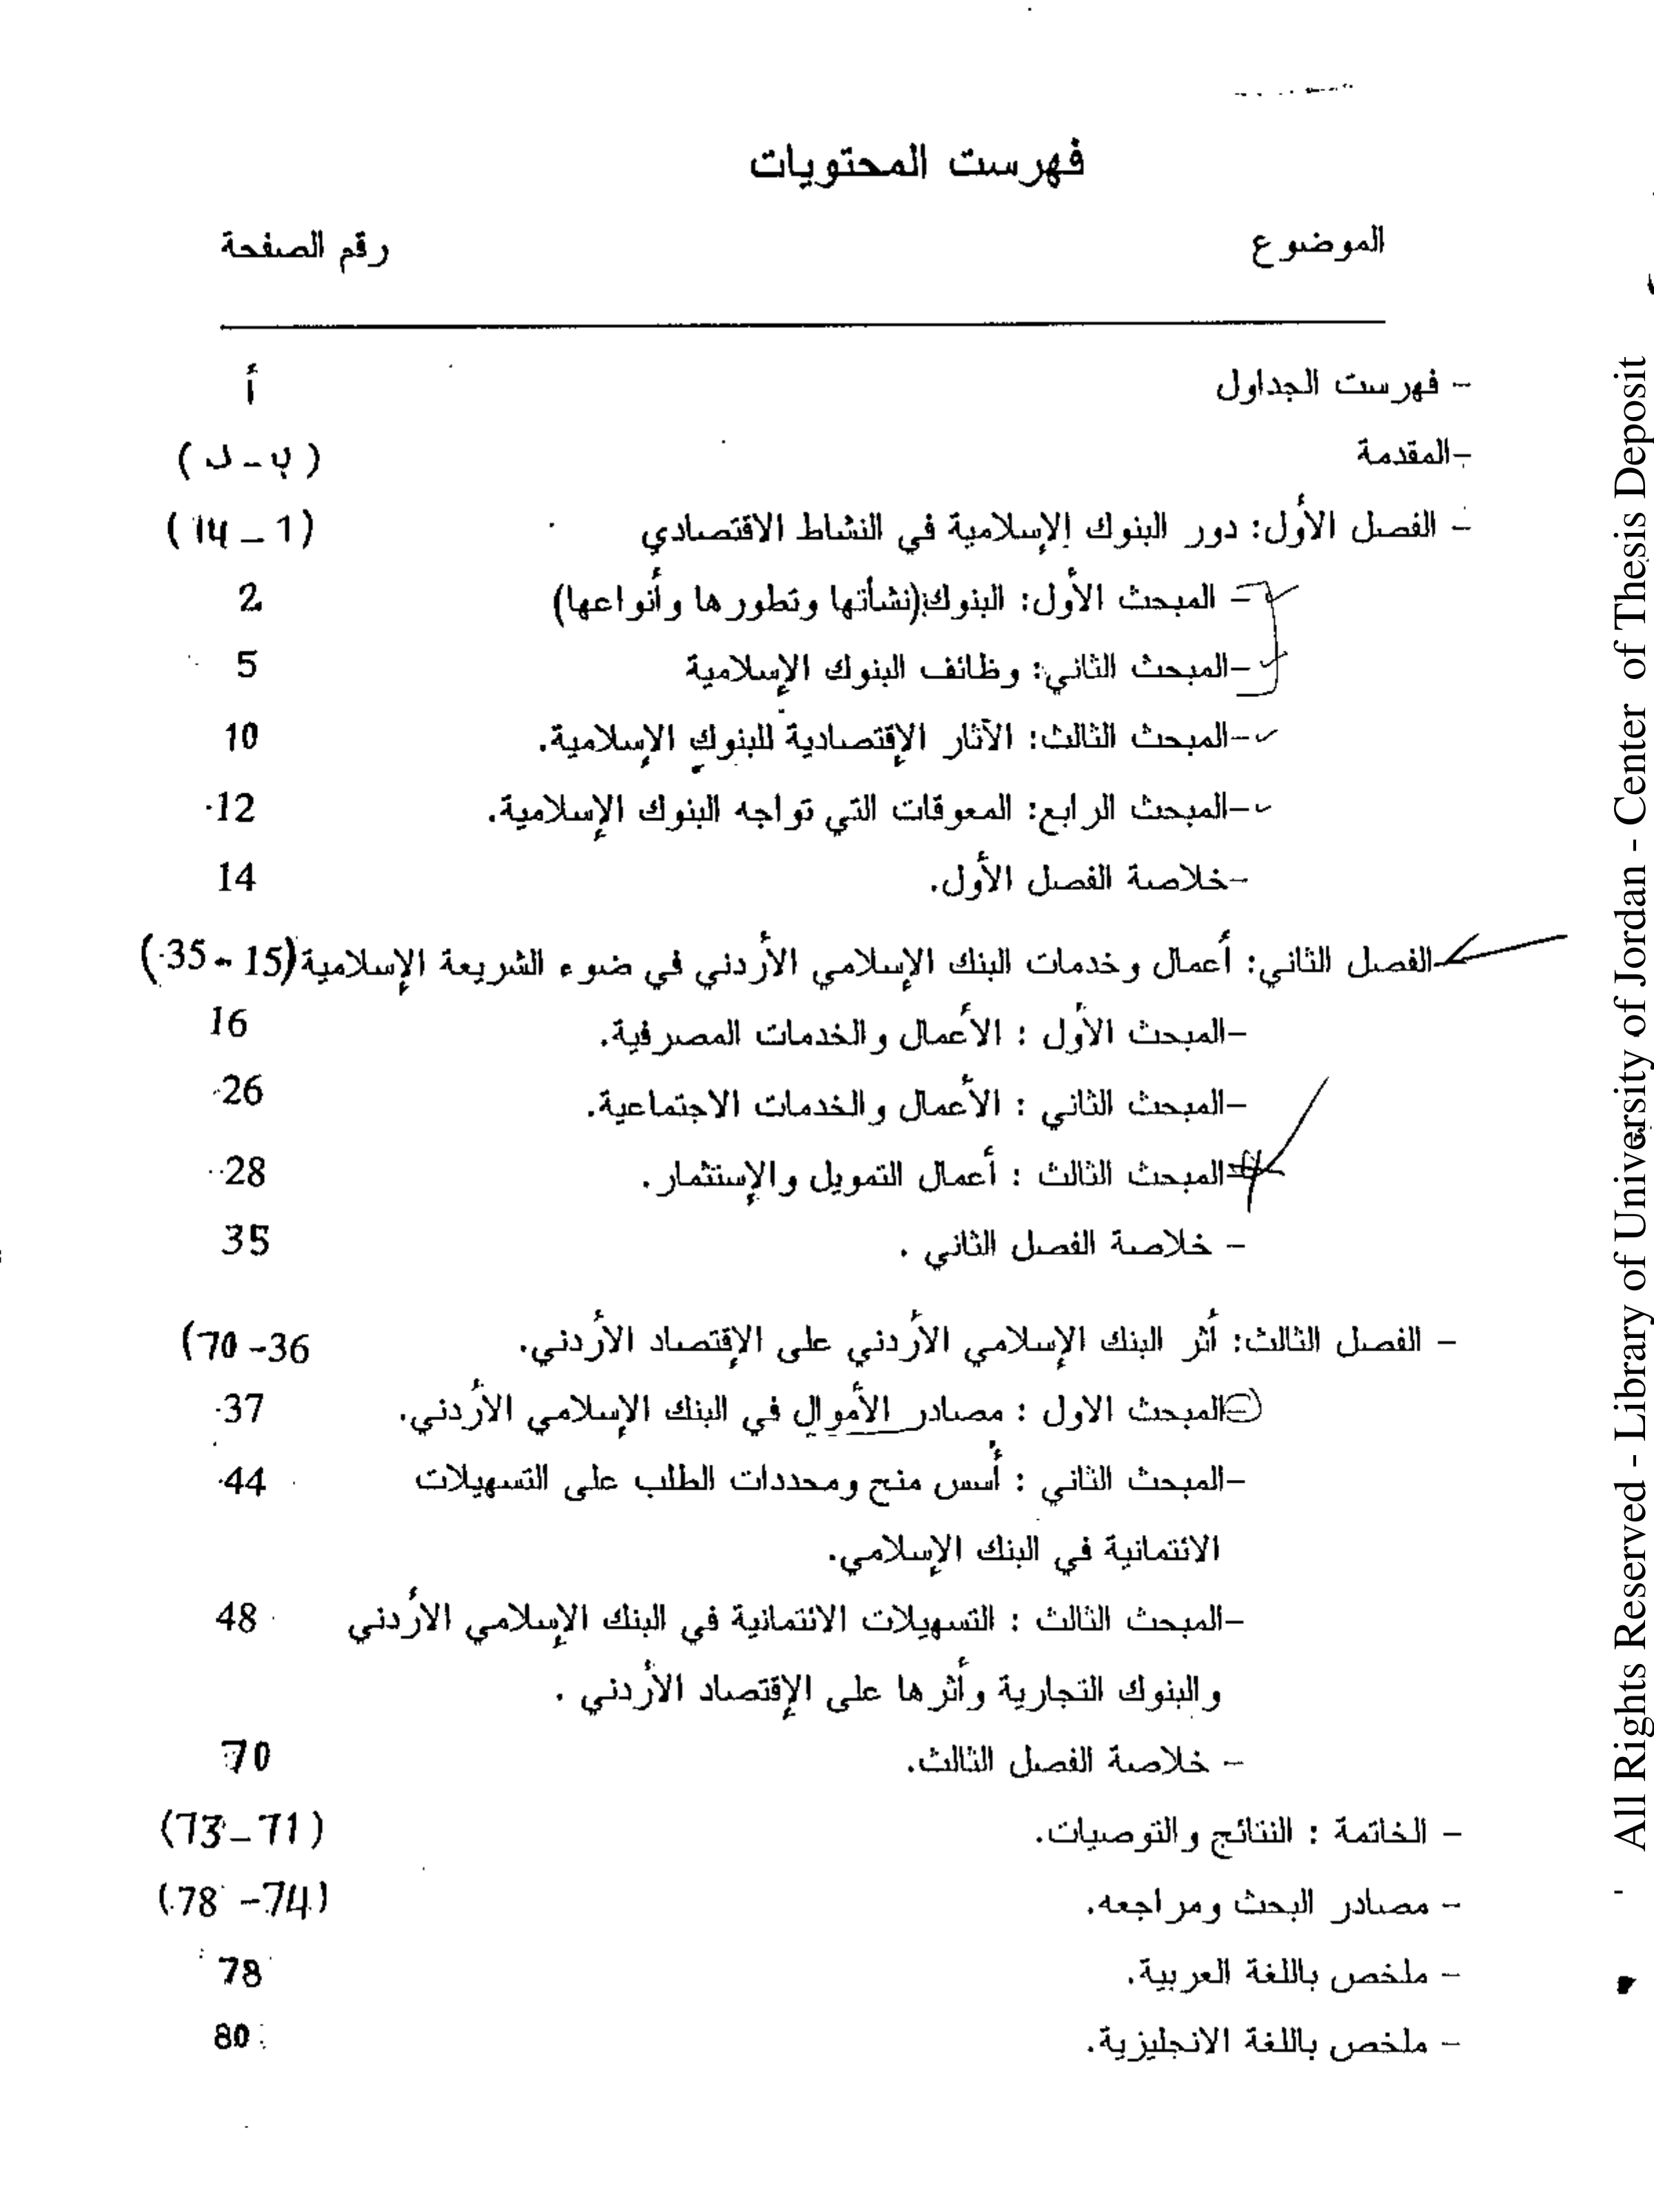 فهرست المحتويات
الموضوع رقم الصفحة
- فهرست الجداول أ
-المقدمة
- الفصل الأول: دور البنوك الإسلامية في النشاط الاقتصادي (1 - 14)
- المبحث الأول: البنوك(نشأتها وتطورها وأنواعها) 2
-المبحث الثاني: وظائف البنوك الإسلامية 5
-المبحث الثالث: الآثار الإقتصادية للبنوك الإسلامية. 10
-المبحث الرابع: المعوقات التي تواجه البنوك الإسلامية. 12
-خلاصة الفصل الأول. 14
-الفصل الثاني: أعمال وخدمات البنك الإسلامي الأردني في ضوء الشريعة الإسلامية(15 - 35)
-المبحث الأول : الأعمال والخدمات المصرفية. 16
-المبحث الثاني : الأعمال والخدمات الاجتماعية. 26
-المبحث الثالث : أعمال التمويل والإستثمار. 28
- خلاصة الفصل الثاني . 35
- الفصل الثالث: أثر البنك الإسلامي الأردني على الإقتصاد الأردني. 36- 70)
-المبحث الاول : مصادر الأموال في البنك الإسلامي الأردني. 37
-المبحث الثاني : أسس منح ومحددات الطلب على التسهيلات 44
الائتمانية في البنك الإسلامي.
-المبحث الثالث : التسهيلات الائتمانية في البنك الإسلامي الأردني 48
والبنوك التجارية وأثرها على الإقتصاد الأردني .
- خلاصة الفصل الثالث. 70
- الخاتمة : النتائج والتوصيات. (71 - 73)
- مصادر البحث ومراجعه. (74 - 78)
- ملخص باللغة العربية. 78
- ملخص باللغة الانجليزية. 80
All Rights Reserved - Library of University of Jordan - Center of Thesis Deposit